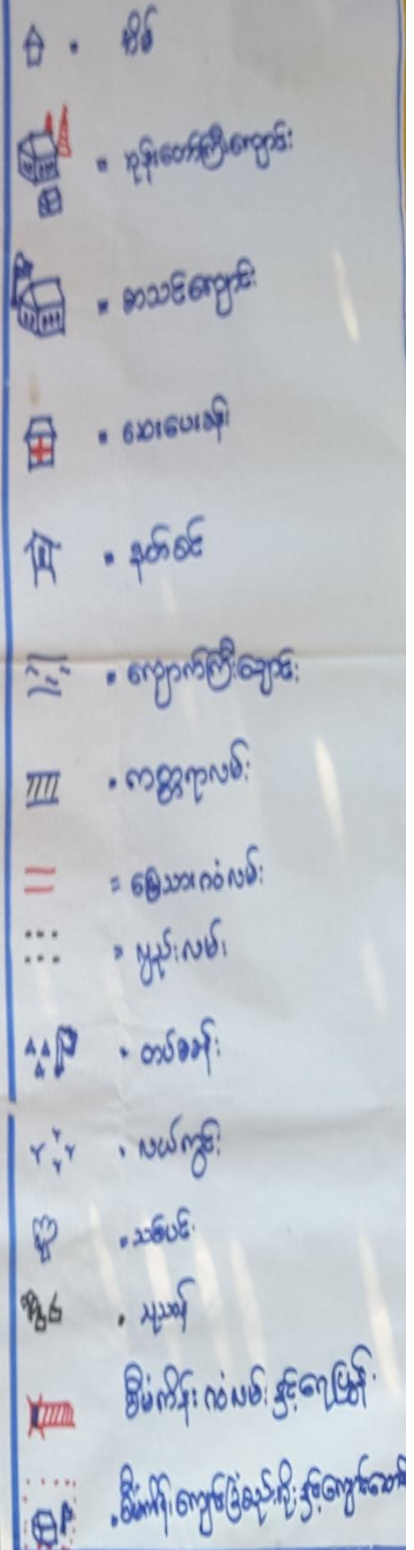 = အိမ်
= ဘုန်းတော်ကြီးကျောင်း
= စာသင်ကျောင်း
= ဆေးပေးခန်း
= နတ်စင်
= ကျောက်ကြီးချောင်း
= ကတ္တရာလမ်း
= မြေသားဂဝံလမ်း
= လှည်းလမ်း
= တပ်စခန်း
= လယ်ကွင်း
= သစ်ပင်
= သုသာန်
စီမံကိန်း ဂဝံလမ်း နှင့်ရေပြွန်
= စီမံကိန်း ကျောင်းခြံစည်းရိုး နှင့်